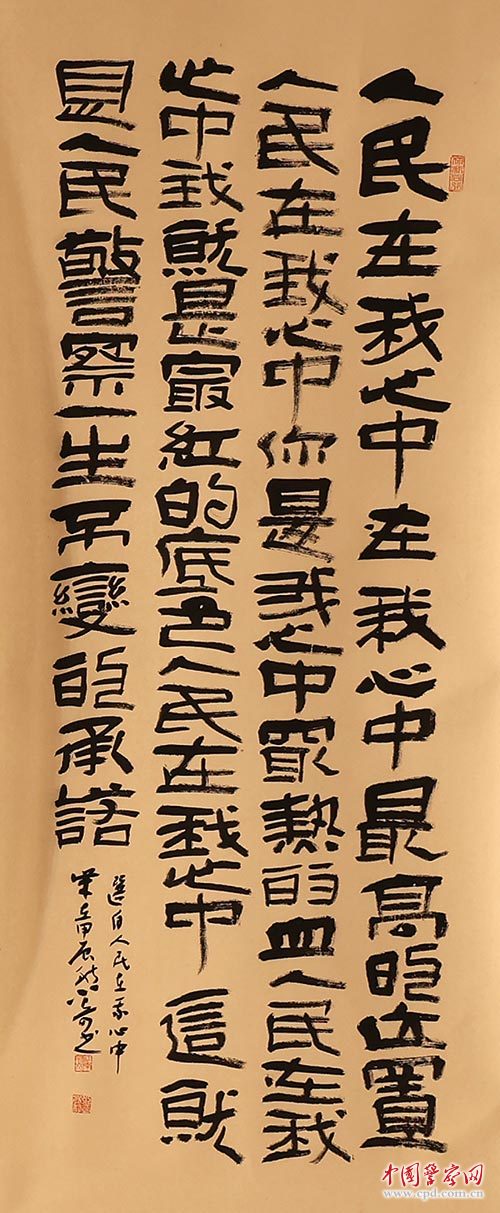 人民在我心中在我心中最高的位置
人民在我心中你是我心中最熱的血人民在我
心中我就是最紅的底色人民在我心中這就
是人民警察一生不變的承諾
選自人民在我心中
中国警察网
www.cpd.com.cn